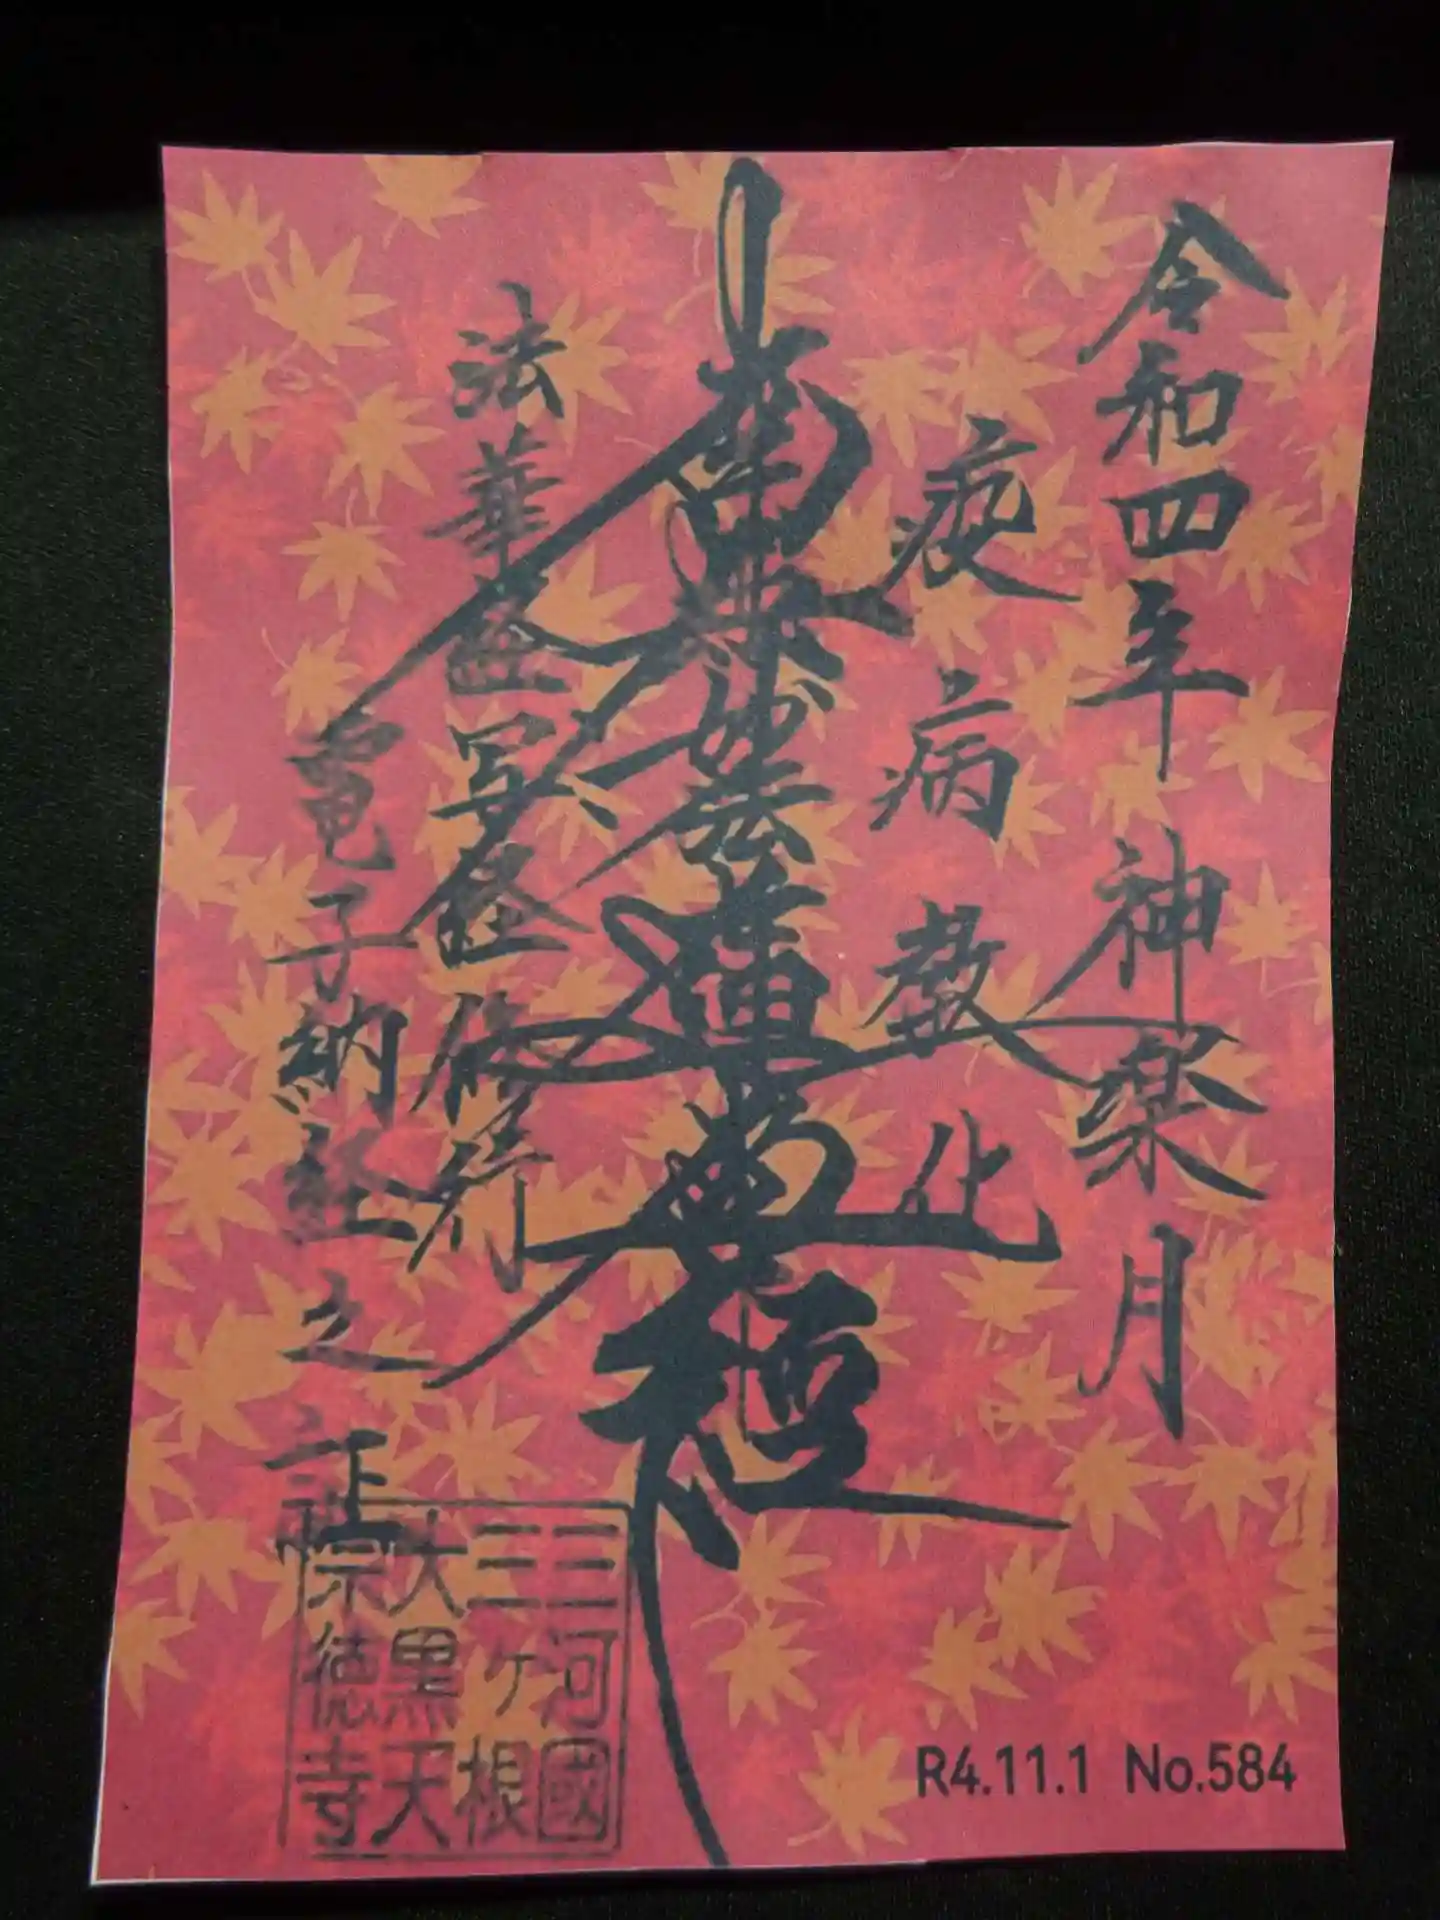 令和四年 神楽月
疫病教化
南無妙法蓮華経
法華経写経修行
竜子納経之証
三河國
三ヶ根
大黒天
宗徳寺
R4.11.1 No.584